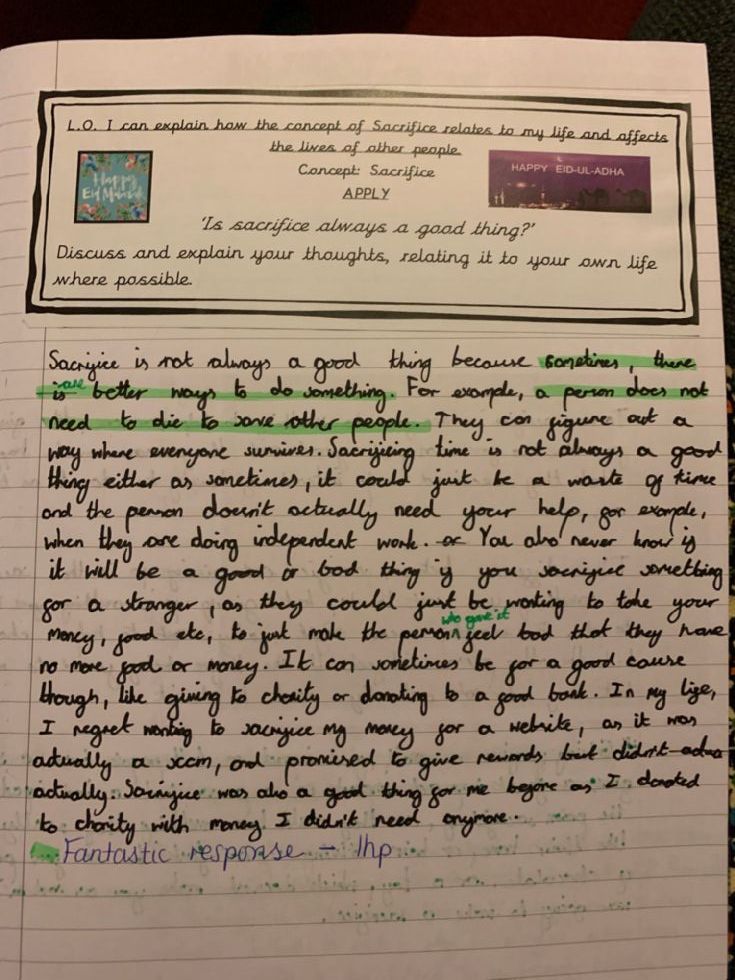 L.O. I can explain how the concept of Sacrifice relates to my life and affects
the lives of other people.
Concept: Sacrifice
APPLY
Happy
Eid Mubarak
HAPPY EID-UL-ADHA
'Is sacrifice always a good thing?'
Discuss and explain your thoughts, relating it to your own life
where possible.
Sacrifice is not always a good thing because sometimes, there
is are better ways to do something. For example, a person does not
need to die to save other people. They can figure out a
way where everyone survives. Sacrificing time is not always a good
thing either as sometimes, it could just be a waste of time
and the person doesn't actually need your help, for example,
when they are doing independent work. or You also never know if
it will be a good or bad thing if you sacrifice something
for a stranger, as they could just be wanting to take your
money, food etc, to just make the person who gave it feel bad that they have
no more food or money. It can sometimes be for a good cause
though, like giving to charity or donating to a good bank. In my life,
I regret wanting to sacrifice my money for a website, as it was
actually a scam, and promised to give rewards but didn't actua
actually. Sacrifice was also a good thing for me before as I donated
to charity with money I didn't need anymore.
Fantastic response - 1hp